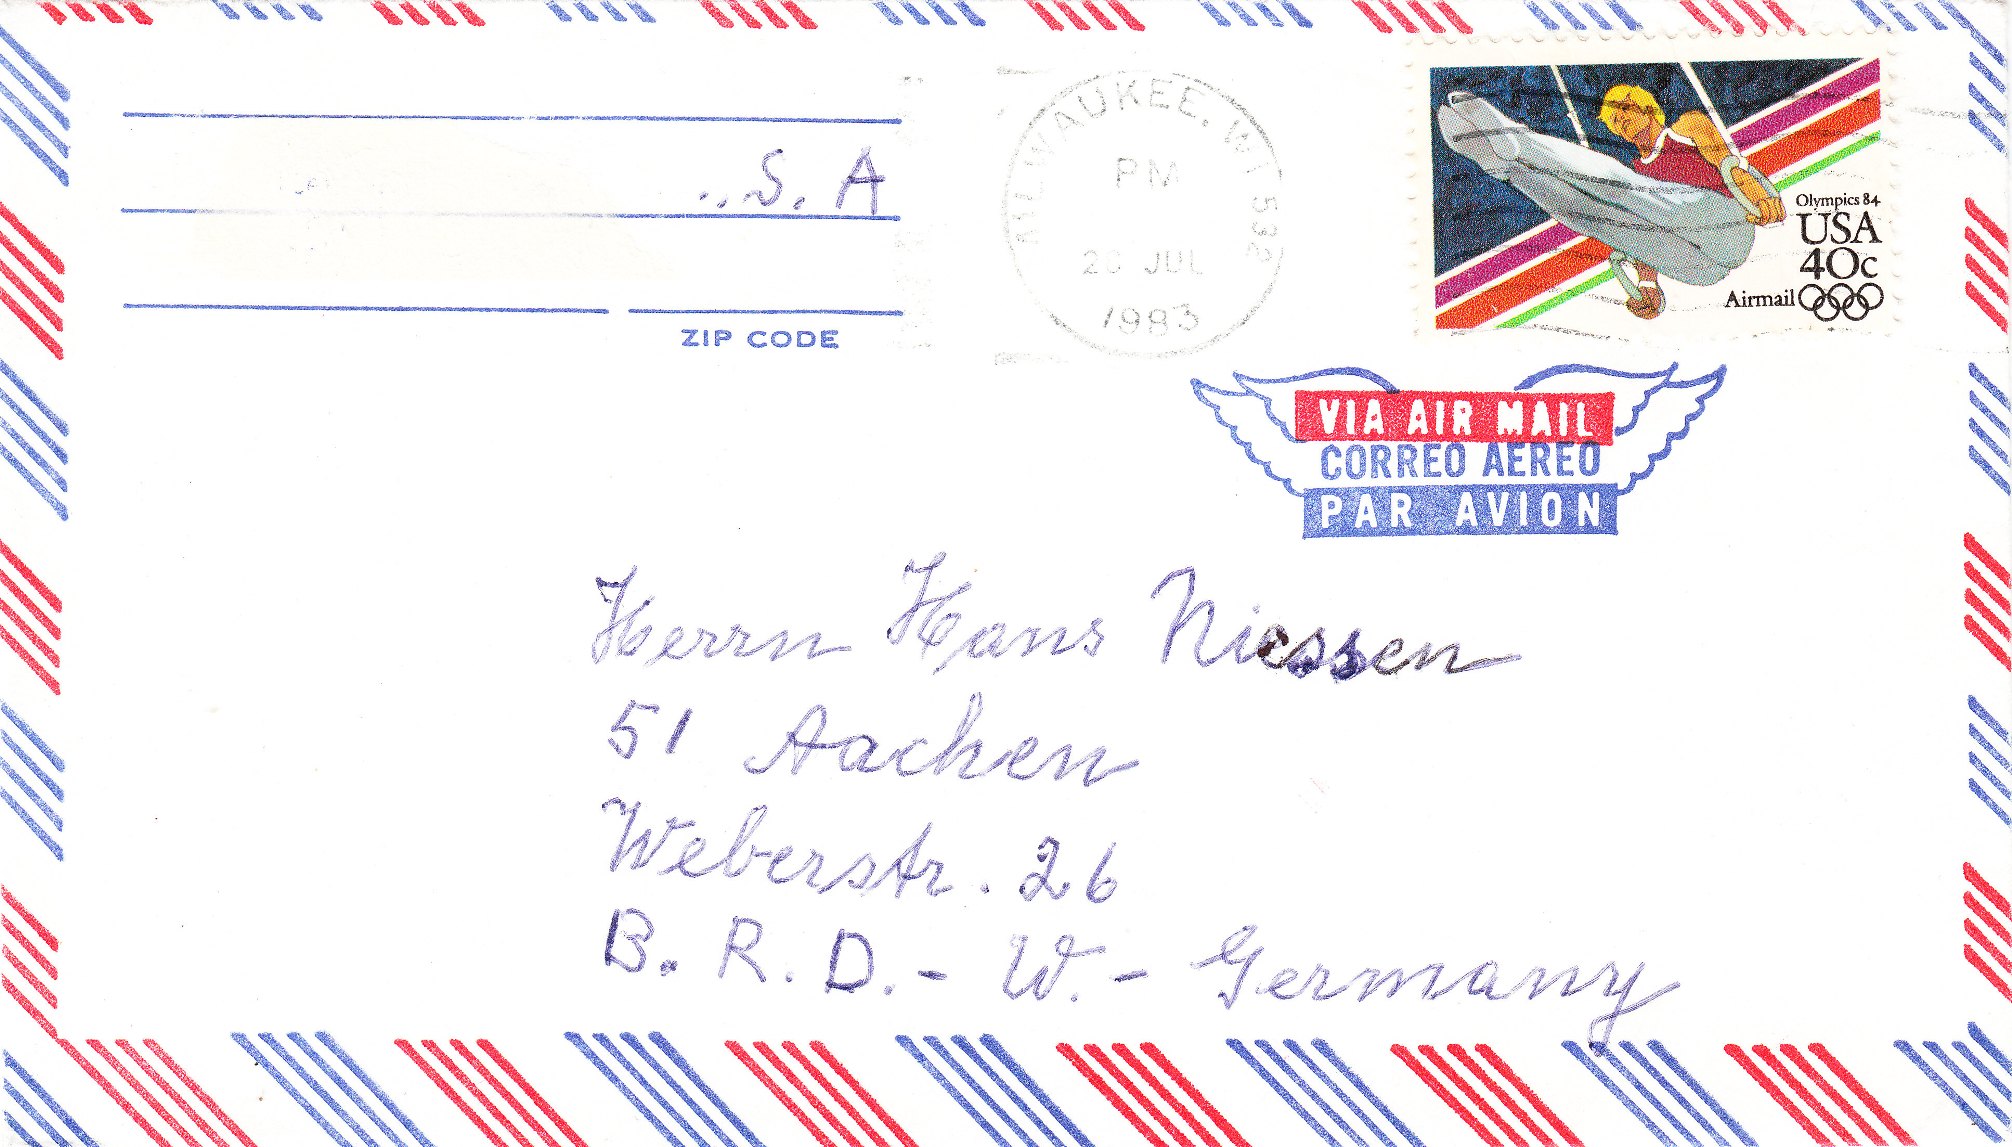 ..S. A
ZIP CODE
MILWAUKEE, WI 532
PM
JUL
1983
Olympics 84
USA
40c
Airmail
VIA AIR MAIL
CORREO AEREO
PAR AVION
Herrn Hans Niessen
51 Aachen
Weberstr. 26
B. R. D. - W. - Germany